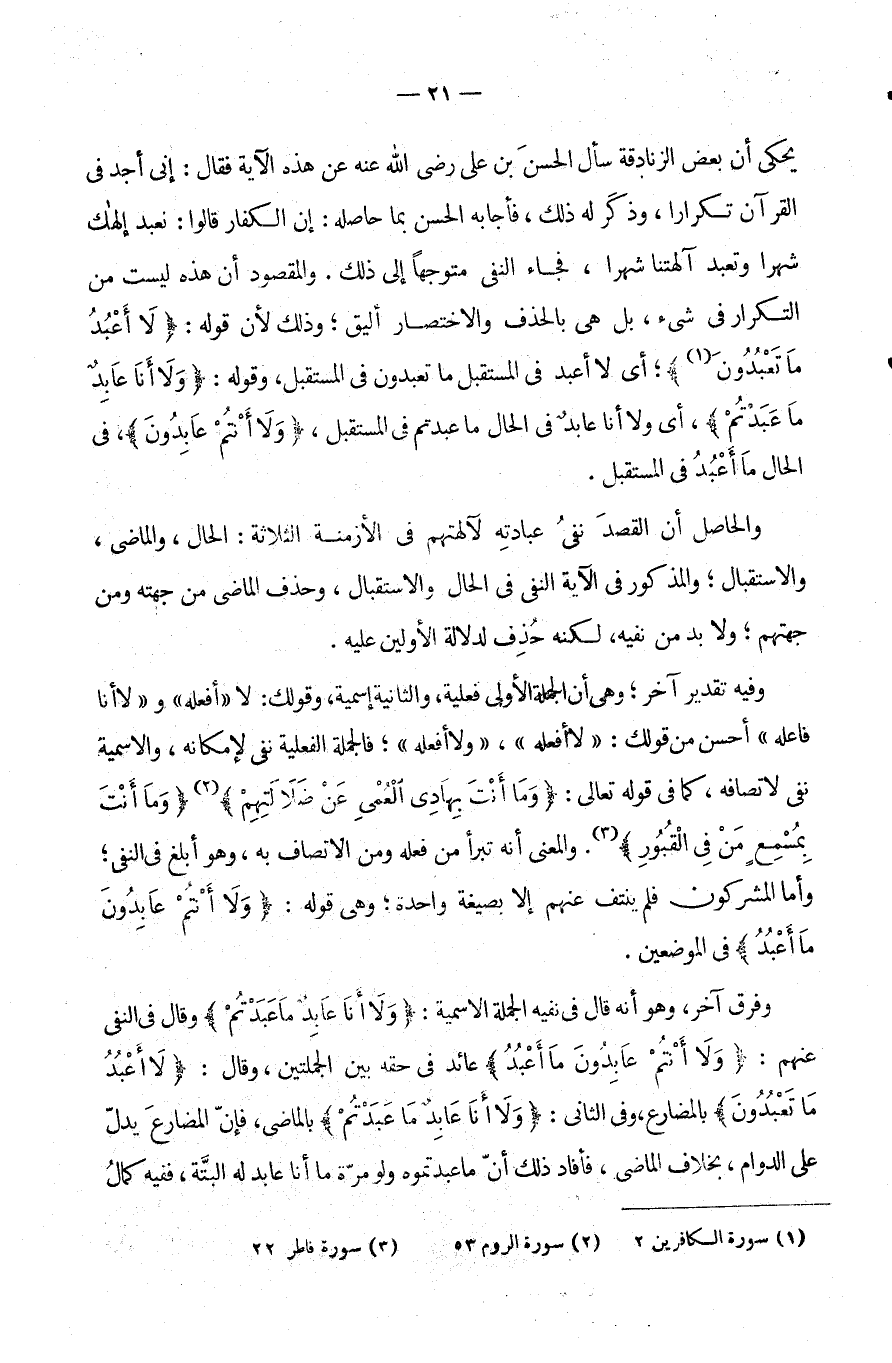 — ٢١ —
يحكى أن بعض الزنادقة سأل الحسنَ بن على رضى الله عنه عن هذه الآية فقال : إنى أجد فى
القرآن تكرارا ، وذكَر له ذلك ، فأجابه الحسن بما حاصله : إن الكفار قالوا : نعبد إلهك
شهرا وتعبد آلهتنا شهرا ، فجاء النفى متوجهاً إلى ذلك . والمقصود أن هذه ليست من
التكرار فى شىء ، بل هى بالحذف والاختصار أليق ؛ وذلك لأن قوله : ﴿ لَا أَعْبُدُ
مَا تَعْبُدُونَ (١) ﴾ ؛ أى لا أعبد فى المستقبل ما تعبدون فى المستقبل، وقوله : ﴿ وَلَا أَنَا عَابِدٌ
مَا عَبَدْتُمْ ﴾ ، أى ولا أنا عابدٌ فى الحال ما عبدتم فى المستقبل ، ﴿ وَلَا أَنْتُمْ عَابِدُونَ ﴾، فى
الحال مَا أَعْبُدُ فى المستقبل .
والحاصل أن القصدَ نفىُ عبادتِه لآلهتهم فى الأزمنة الثلاثة : الحال ، والماضى ،
والاستقبال ؛ والمذكور فى الآية النفى فى الحال والاستقبال ، وحذف الماضى من جهته ومن
جهتهم ؛ ولا بد من نفيه، لكنه حُذِف لدلالة الأولين عليه .
وفيه تقدير آخر ؛ وهى أن الجملة الأولى فعلية، والثانية إسمية، وقولك: لا «أفعله» و « لا أنا
فاعله » أحسن من قولك : « لا أفعله » ، « ولا أفعله » ؛ فالجملة الفعلية نفى لإمكانه ، والاسمية
نفى لاتصافه ، كما فى قوله تعالى : ﴿ وَمَا أَنْتَ بِهَادِى الْعُمْىِ عَنْ ضَلَالَتِهِمْ ﴾(٢) ﴿ وَمَا أَنْتَ
بِمُسْمِعٍ مَنْ فِى الْقُبُورِ ﴾(٣). والمعنى أنه تبرأ من فعله ومن الاتصاف به ، وهو أبلغ فى النفى ؛
وأما المشركون فلم ينتف عنهم إلا بصيغة واحدة ؛ وهى قوله : ﴿ وَلَا أَنْتُمْ عَابِدُونَ
مَا أَعْبُدُ ﴾ فى الموضعين .
وفرق آخر، وهو أنه قال فى نفيه الجملة الاسمية : ﴿ وَلَا أَنَا عَابِدٌ مَاعَبَدْتُمْ ﴾ وقال فى النفى
عنهم : ﴿ وَلَا أَنْتُمْ عَابِدُونَ مَا أَعْبُدُ ﴾ عائد فى حقه بين الجملتين ، وقال : ﴿ لَا أَعْبُدُ
مَا تَعْبُدُونَ ﴾ بالمضارع، وفى الثانى : ﴿ وَلَا أَنَا عَابِدٌ مَا عَبَدْتُمْ ﴾ بالماضى، فإنّ المضارعَ يدلّ
على الدوام ، بخلاف الماضى ، فأفاد ذلك أنّ ماعبدتموه ولو مرّة ما أنا عابد له البتَّة ، ففيه كمالُ
(١) سورة الكافرين ٢ (٢) سورة الروم ٥٣ (٣) سورة فاطر ٢٢